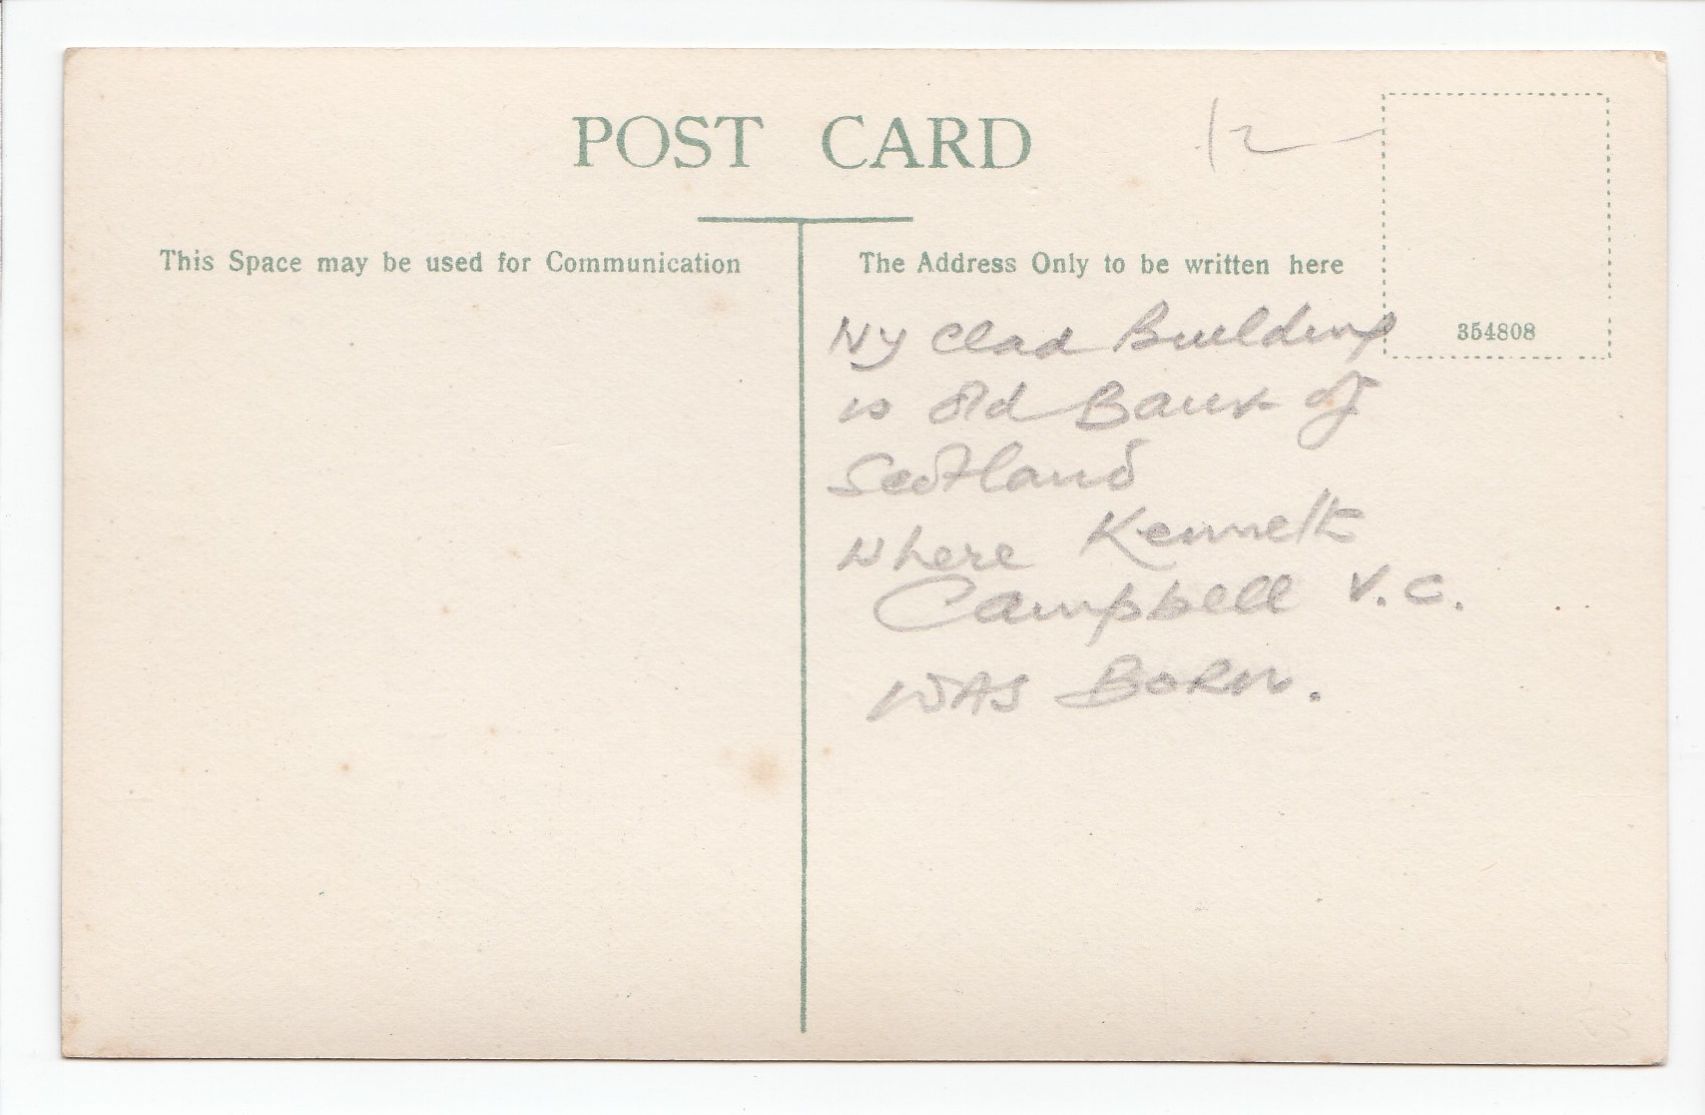 POST CARD
12
This Space may be used for Communication
The Address Only to be written here
354808
Ivy Clad Building
is Old Bank of
Scotland
where Kenneth
Campbell V.C.
WAS BORN.